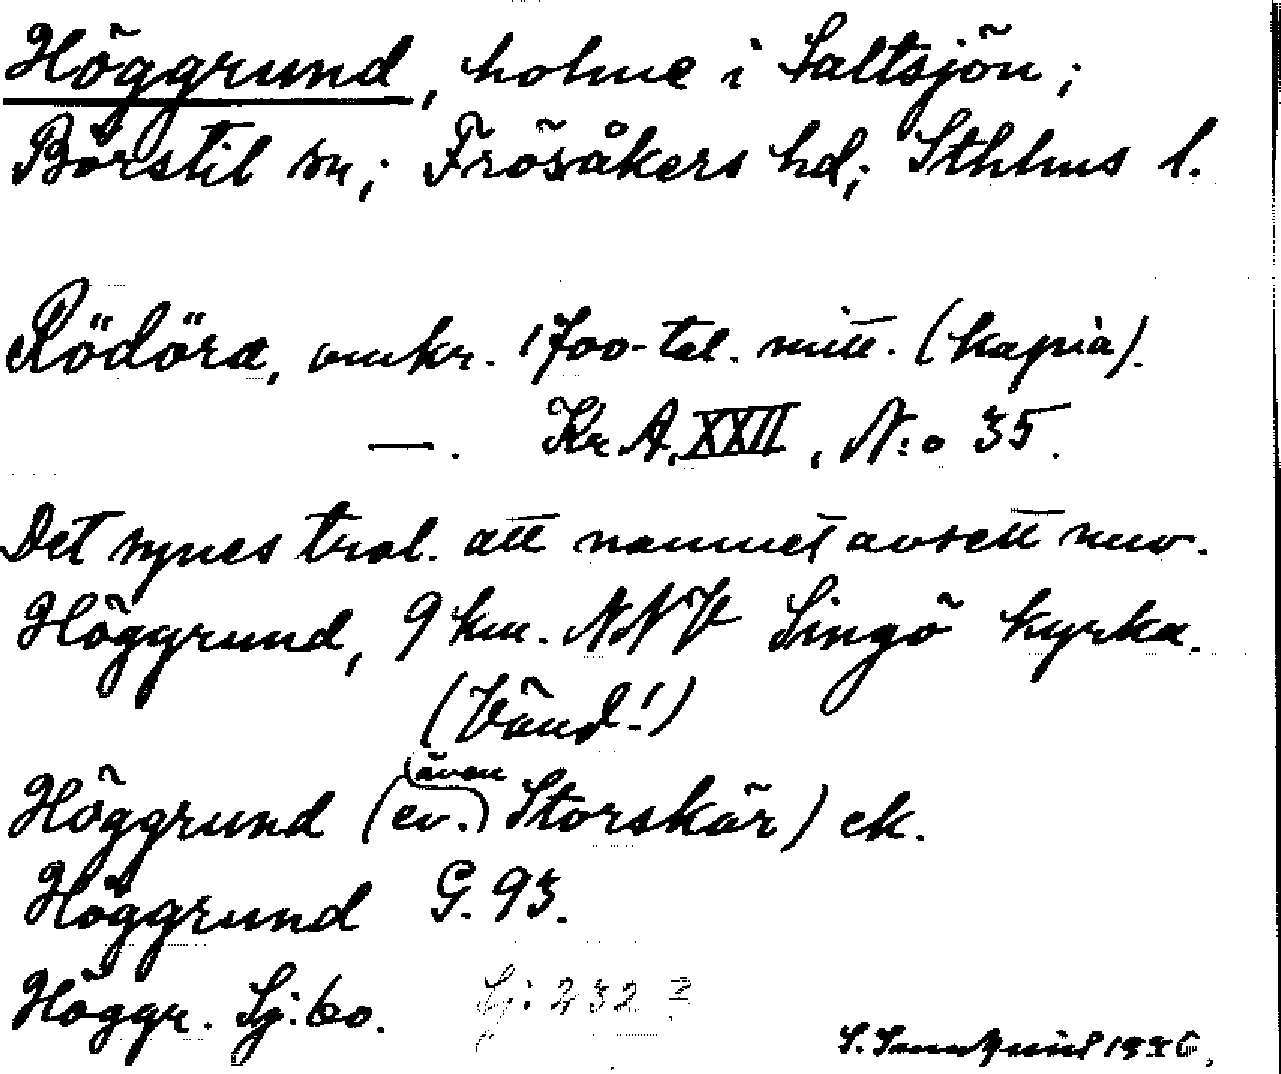 Höggrund, holme i Saltsjön;
Börstil sn; Frösåkers hd; Sthlms l.
Rödöra, omkr. 1700-tal. mitt. (kopia).
—. Kr. A. XXII, N:o 35.
Det synes trol. att namnet avsett nuv.
Höggrund, 9 km. NNV Singö kyrka.
(Vänd!)
Höggrund (ev. (även) Storskär) ek.
Höggrund G. 93.
Höggr. Sj: 60. Sj: 232